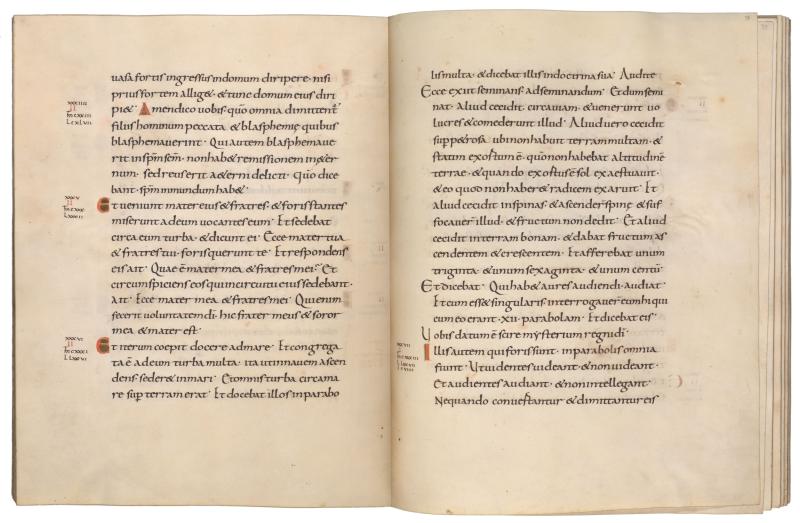 uasa fortis ingressus indomum diripere · nisi
prius fortem allig& · & tunc domum eius diri
pi& · Amendico uobis · quō omnia dimittent̄
filiis hominum peccata & blasphemię quibus
blasphemauerint · Quiautem blasphemaue
rit inspm̄ scm̄ · nonhab& remissionem in&er
num · sedreuserit aeterni delicti · Quō dice
bant · spm̄ inmundum hab& ·
Et ueniunt mater eius & fratres · & foris stantes
miserunt adeum uocantes eum · Et sedebat
circa eum turba · & dicunt ei · Ecce mater tua
& fratres tui · foris querunt te · Et respondens
eis ait · Quae ē mater mea & fratres mei · Et
circumspiciens eos quiincircuitu eius sedebant ·
ait · Ecce mater mea · & fratres mei · Quienim
fecerit uoluntatem dī · hic frater meus & soror
mea & mater est ·
Et iterum coepit docere admare · Et congrega
ta ē adeum turba multa · ita utinnauem ascen
dens · seder& inmari · Etomnis turba circa ma
re sup terram erat · Et docebat illos inparabo
xxxiiii
II
xxxv
II
xxxvi
II
lis multa · & dicebat illis indoctrina sua · Audite
Ecce exiit seminans adseminandum · Et dum semi
nat · aliud cecidit circa uiam · & uenerunt uo
lucres & comederunt illud · Aliud uero cecidit
sup p&rosa ubi nonhabuit terram multam · &
statim exortum ē · quō nonhabebat altitudinē
terrae · & quando exortus ē sol exaestuauit ·
& eo quod nonhaber& radicem exaruit · Et
aliud cecidit inspinas · & ascenderunt spinę & suf
focauer̄ illud · & fructum nondedit · Et aliud
cecidit interram bonam · & dabat fructum as
cendentem & crescentem · Et afferebat unum
triginta · & unum sexaginta · & unum centū ·
Et dicebat · Qui hab& aures audiendi · audiat ·
Et cum ess& singularis · interrogauer̄ eum hi qui
cum eo erant · xii · parabolam · Et dicebat eis
Uobis datum ē scire mysterium regni dī ·
Illis autem qui foris sunt · inparabolis omnia
fiunt · Ut uidentes uideant · & non uideant ·
Et audientes audiant · & non intellegant ·
Nequando conuertantur · & dimittantur eis
xxxvii
I